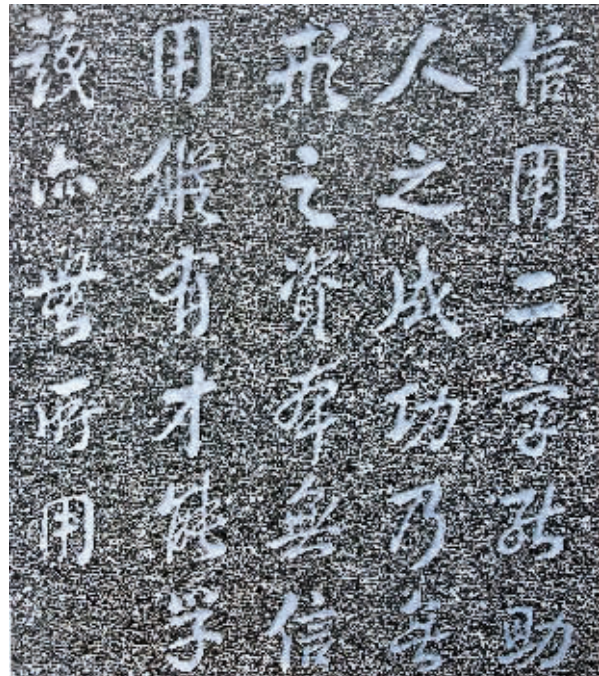 信用二字能助
人之成功乃無
形之資本無信
用縱有才能学
識亦無所用